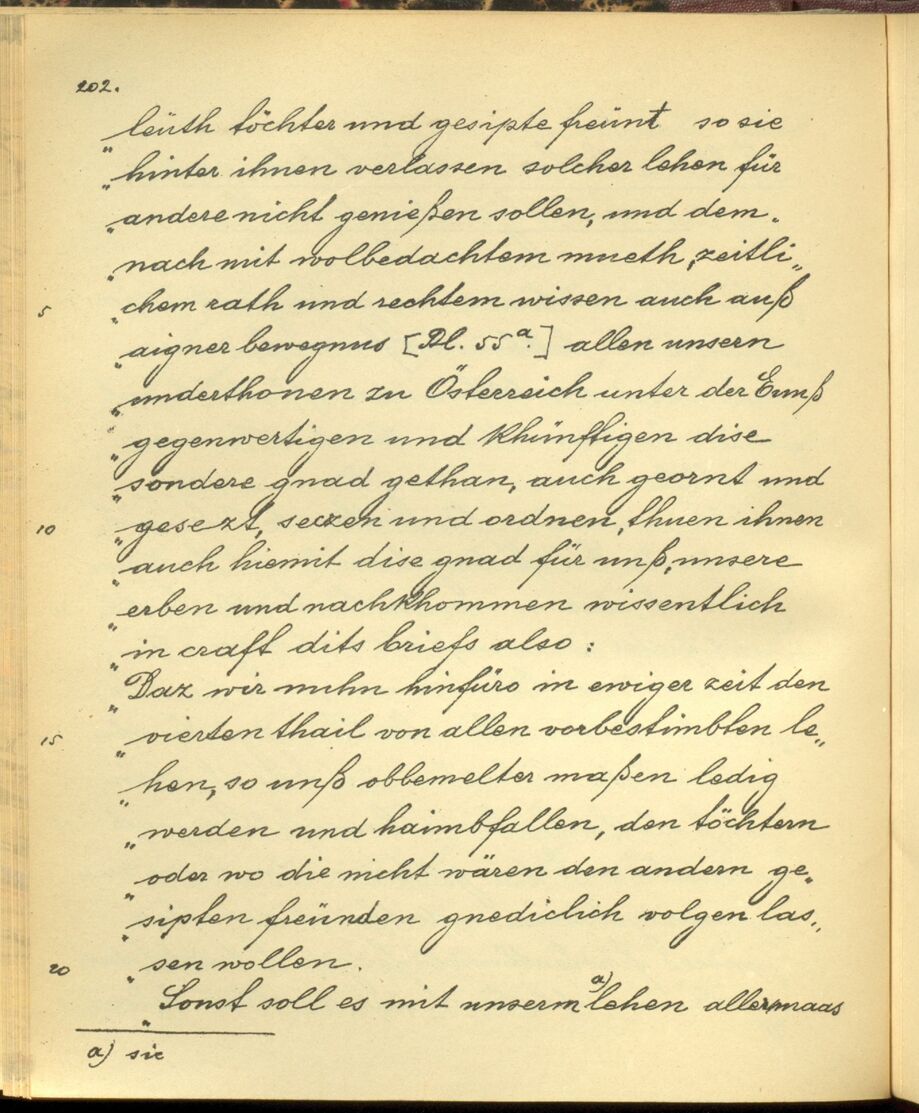 202.
„leüth töchter und gesipte freünt so sie
„hinter ihnen verlassen solcher lehen für
„andere nicht genießen sollen, und dem„
„nach mit wolbedachtem mueth, zeitli„
5 „chem rath und rechtem wissen auch auß
„aigner bewegnus [Bl. 55a.] allen unsern
„underthonen zu Österreich unter der Ennß
„gegenwertigen und khünfftigen dise
„sondere gnad gethan, auch geornt und
10 „gesezt, seczen und ordnen, thuen ihnen
„auch hiemit dise gnad für unß, unsere
„erben und nachkhommen wissentlich
„in craft dits briefs also:
„Daz wir nuhn hinfüro in ewiger zeit den
15 „vierten thail von allen vorbestimbten le„
„hen, so unß obbemelter maßen ledig
„werden und haimbfallen, den töchtern
„oder wo die nicht wären den andern ge„
„sipten freünden gnediclich volgen las„
20 „sen wollen.
„Sonst soll es mit unserm a) lehen allermaas
a) sic